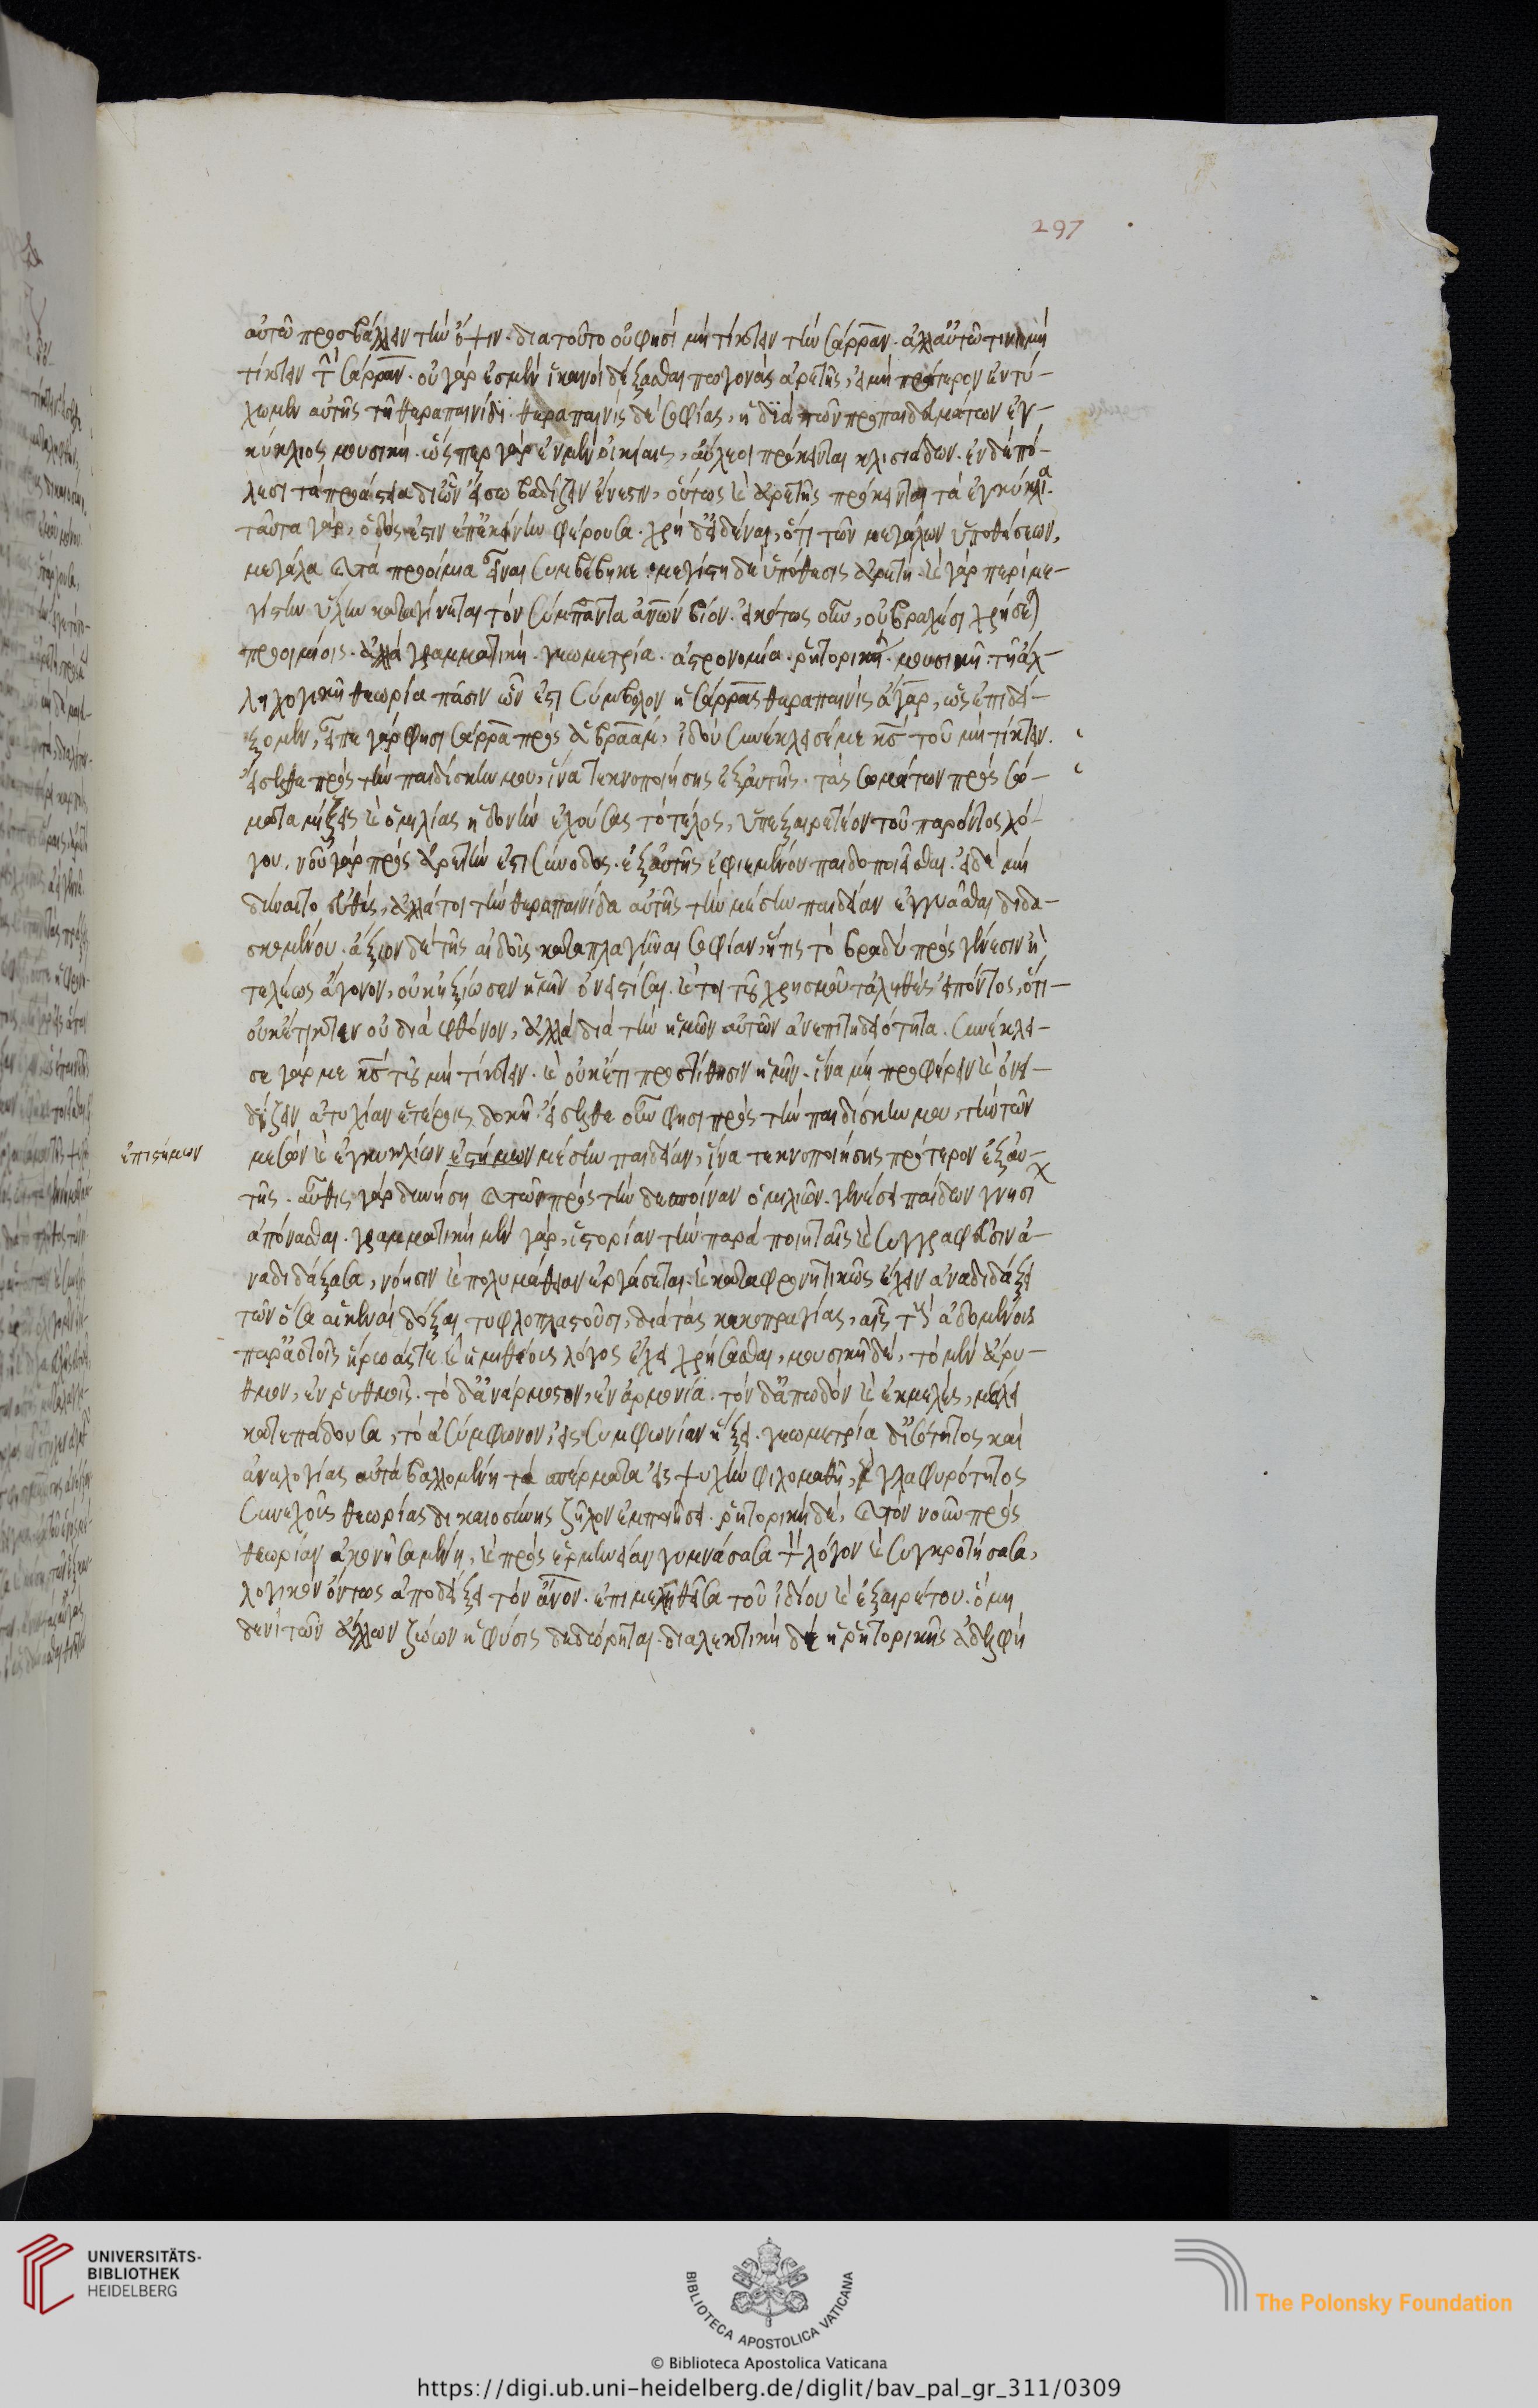 297
αὐτῶ προσβάλλειν τὴν ὄψιν. διατοῦτο οὔφησί μὴ τίκτειν τὴν σάρραν. ἀλλ' αὐτῶ τινι μὴ
τίκτειν τὴν σάρραν. οὐ γάρ ἐσμὲν ἱκανοὶ δέξασθαι πω γονὰς ἀρετῆς, εἰ μὴ πρότερον ἐντύ-
χωμεν αὐτῆς τῆ θεραπαινίδι. θεραπαινὶς δὲ σοφίας, ἡ διὰ τῶν προπαιδευμάτων ἐγ-
κύκλιος μουσική. ὥσπερ γὰρ ἐν μὲν οἰκίαις, αὔλειοι πρόκεινται κλισιάδων. ἐν δὲ πό-
λεσι τὰ προάστεια δι' ὧν εἴσω βαδίζειν ἔνεστιν, οὕτως καὶ ἀρετῆς πρόκεινται τὰ ἐγκύκλια.
ταῦτα γὰρ, ὁδός ἐστιν ἐπ' ἐκείνην φέρουσα. χρὴ δ' εἰδέναι, ὅτι τῶν μεγάλων ὑποθέσεων,
μεγάλα καὶ τὰ προοίμια εἶναι συμβέβηκε. μεγίστη δὲ ὑπόθεσις ἀρετή. καὶ γὰρ περὶ με-
γίστην ὕλην καταγίνεται τὸν σύμπαντα ἀνων βίον. εἰκότως οὖν, οὐ βραχέσι χρήσεται
προοιμίοις. ἀλλὰ γραμματικῆ. γεωμετρία. ἀστρονομία. ῥητορικῆ. μουσικῆ. τῆ ἄλ-
λη λογικῆ θεωρία πάσιν ὧν ἐστι σύμβολον ἡ σάρρας θεραπαινὶς ἄγαρ, ὡς ἐπιδεί-
ξομεν, εἶπε γάρ φησι σάρρα πρὸς ἀβραάμ, ἰδοὺ συνέκλεισέ με κς τοῦ μὴ τίκτειν.
εἴσελθε πρὸς τὴν παιδίσκην μου, ἵνα τεκνοποιήσης ἐξ αὐτῆς. τὰς σωμάτων πρὸς σώ-
ματα μίξεις καὶ ὁμιλίας ἡδονὴν ἐχούσας τὸ τέλος, ὑπεξαιρετέον τοῦ παρόντος λό-
γου. νοῦ γὰρ πρὸς ἀρετήν ἐστι σύνοδος. ἐξ αὐτῆς ἐφιεμένου παιδοποιεῖσθαι. εἰ δὲ μὴ
δύναιτο εὐθὺς, ἀλλάτοι τὴν θεραπαινίδα αὐτῆς τὴν μέσην παιδείαν ἐγγυᾶσθαι διδα-
σκομένου. ἄξιον δὲ τῆς αἰδοῦς καταπλαγῆναι σοφίαν, ἥτις τὸ βραδὺ πρὸς γένεσιν ἢ
τελέως ἄγονον, οὐκ ἠξίωσεν ἡμῖν ὀνειδίσαι. καίτοι τοῦ χρησμοῦ τἀληθὲς εἰπόντος, ὅτι-
οὐκ ἔτικτεν οὐ διὰ φθόνον, ἀλλὰ διὰ τὴν ἡμῶν αὐτῶν ἀνεπιτηδειότητα. συνέκλει-
σε γάρ με κς τοῦ μὴ τίκτειν. καὶ οὐκέτι προστίθησιν ἡμῖν. ἵνα μὴ προφέρειν καὶ ὀνει-
δίζειν ἀτυχίαν ἑτέροις δοκῆ. εἴσελθε οὖν φησι πρὸς τὴν παιδίσκην μου, τὴν τῶν
ἐπιστήμων
μέσων καὶ ἐγκυκλίων ἐπιστήμων μέσην παιδείαν, ἵνα τεκνοποιήσης πρότερον ἐξ αὐ-
τῆς. αὖθις γὰρ δυνήση καὶ τῶν πρὸς τὴν δέσποιναν ὁμιλιῶν. γενέσει παίδων γνησί
ἀπόνασθαι. γραμματικὴ μὲν γὰρ, ἱστορίαν τὴν παρὰ ποιηταῖς καὶ συγγραφεῦσιν ἀ-
ναδιδάξασα, νόησιν καὶ πολυμάθειαν ἐργάσεται. καὶ καταφρονητικῶς ἔχειν ἀναδιδάξει
τῶν ὅσα αἱ κεναὶ δόξαι τυφλοπλαστοῦσι, διὰ τὰς κακοπραγίας, αἷς τοὺς ἀδομένους
παρ' αὐτοῖς ἥρωάς τε καὶ ἡμιθέους λόγος ἔχει χρήσασθαι, μουσικὴ δὲ, τὸ μὲν ἄρυ-
θμον, ἐν ῥυθμοῖς. τὸ δ' ἀνάρμοστον, ἐν ἁρμονία. τὸν δ' ἀπωδὸν καὶ ἐκμελὲς, μέλει
κατεπάδουσα, τὸ ἀσύμφωνον, εἰς συμφωνίαν ἥξει. γεωμετρία δ' ἰσότητος καὶ
ἀναλογίας αὐτὰ βαλλομένη τὰ σπέρματα εἰς ψυχὴν φιλομαθῆ, καὶ γλαφυρότητος
συνεχοῦς θεωρίας δικαιοσύνης ζῆλον ἐμποιήσει. ῥητορικὴ δὲ, καὶ τὸν νοῦν πρὸς
θεωρίαν ἀκονησαμένη, καὶ πρὸς ἑρμηνείαν γυμνάσασα τὸν λόγον καὶ συγκροτήσασα,
λογικὸν ὄντως ἀποδείξει τὸν ἄνον. ἐπιμεληθεῖσα τοῦ ἰδίου καὶ ἐξαιρέτου. ὃ μη
δενὶ τῶν ἄλλων ζώων ἡ φύσις δεδώρηται. διαλεκτικὴ δὲ ἡ ῥητορικῆς ἀδελφὴ
UNIVERSITÄTS-
BIBLIOTHEK
HEIDELBERG
BIBLIOTECA APOSTOLICA VATICANA
The Polonsky Foundation
© Biblioteca Apostolica Vaticana
https://digi.ub.uni-heidelberg.de/diglit/bav_pal_gr_311/0309